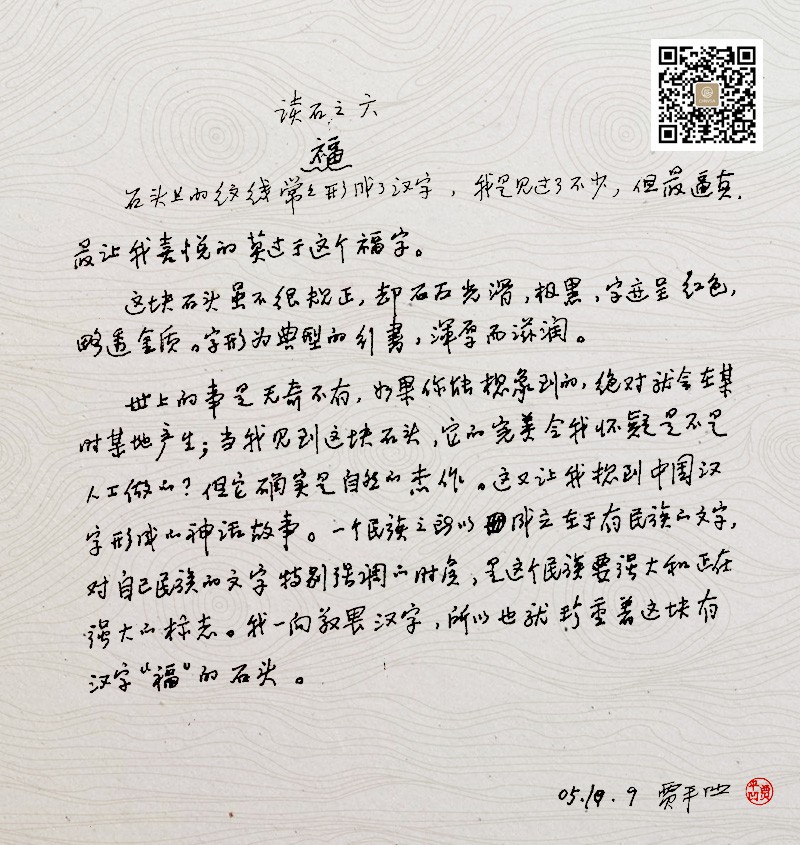 读石之六
福
石头上的纹线常常形成了汉字，我是见过了不少，但最逼真，
最让我喜悦的莫过于这个福字。
这块石头虽不很规正，却石石光滑，极黑，字迹呈红色，
略透金质。字形为典型的隶书，浑厚而滋润。
世上的事是无奇不有，如果你能想象到的，绝对就会在某
时某地产生；当我见到这块石头，它的完美令我怀疑是不是
人工做的？但它确实是自然的杰作。这又让我想到中国汉
字形成的神话故事。一个民族之所以成立在于有民族的文字，
对自己民族的文字特别强调的时候，是这个民族要强大和正在
强大的标志。我一向敬畏汉字，所以也就珍重着这块有
汉字“福”的石头。
05.10.9 贾平凹
贾平凹